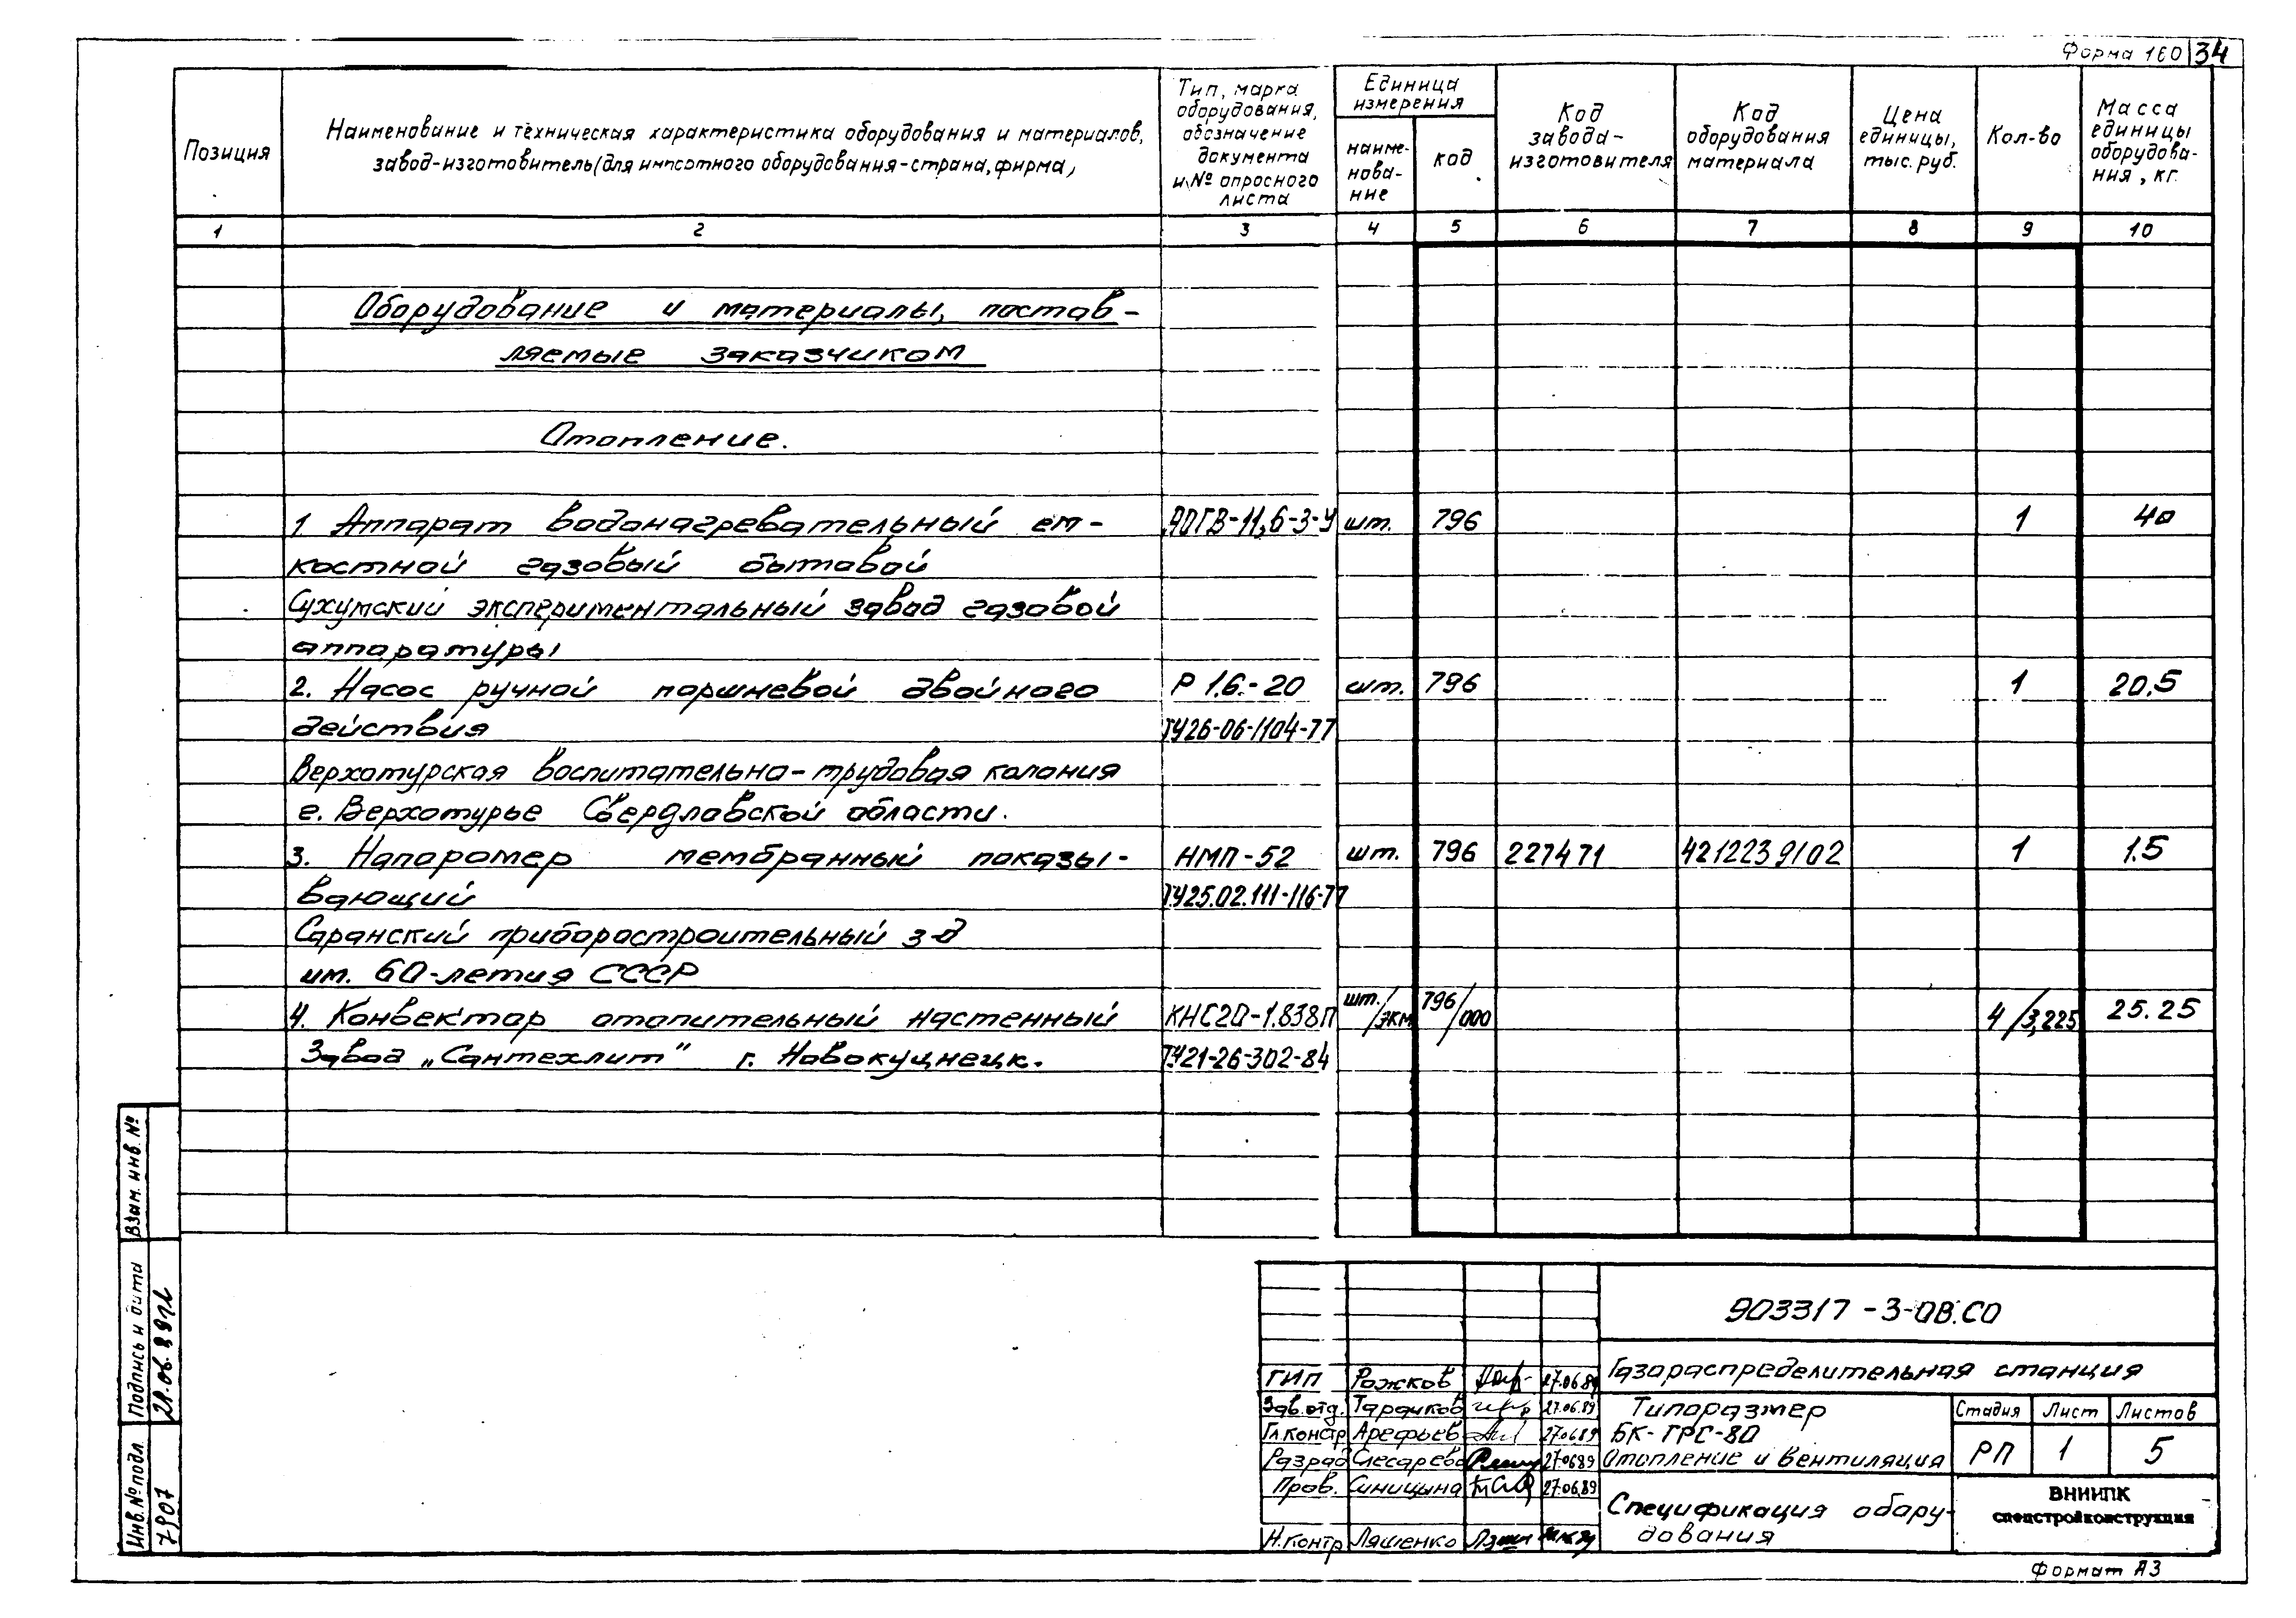 Форма 160 34
Позиция
Наименование и техническая характеристика оборудования и материалов,
завод-изготовитель (для импортного оборудования-страна, фирма)
Тип, марка
оборудования,
обозначение
документа
и № опросного
листа
Единица
измерения
наиме-
нова-
ние
код
Код
завода-
изготовителя
Код
оборудования
материала
Цена
единицы,
тыс. руб.
Кол-во
Масса
единицы
оборудова-
ния, кг.
1 2 3 4 5 6 7 8 9 10
Оборудование и материалы, постав-
ляемые заказчиком
Отопление.
1 Аппарат водонагревательный ем- АОГВ-11,6-3-У шт. 796 1 40
костной газовый бытовой
Сухумский экспериментальный завод газовой
аппаратуры
2. Насос ручной поршневой двойного Р 1.6.-20 шт. 796 1 20.5
действия ТУ26-06-1104-77
Верхотурская воспитательно-трудовая колония
г. Верхотурье Свердловской области.
3. Напоромер мембранный показы- НМП-52 шт. 796 227471 4212239102 1 1.5
вающий ТУ25.02.111-116-77
Саранский приборостроительный з-д
им. 60-летия СССР
4. Конвектор отопительный настенный КНС20-1.838П шт./экм 796/000 4/3,225 25.25
Завод „Сантехлит" г. Новокуцнецк. ТУ21-26-302-84
Взам. инв. №
Подпись и дата
21.06.89
Инв. № подл.
7907
903317-3-ОВ.СО
ГИП Рожков 27.06.89
Газораспределительная станция
Зав.отд. 27.06.89
Гл.констр Арефьев 27.06.89
Разраб Слесарева 27.06.89
Пров. Синицына 27.06.89
Н.контр Ляшенко
Типоразмер
БК-ГРС-80
Отопление и вентиляция
Стадия Лист Листов
РП 1 5
Спецификация обору-
дования
ВНИИПК
спецстройконструкция
Формат А3